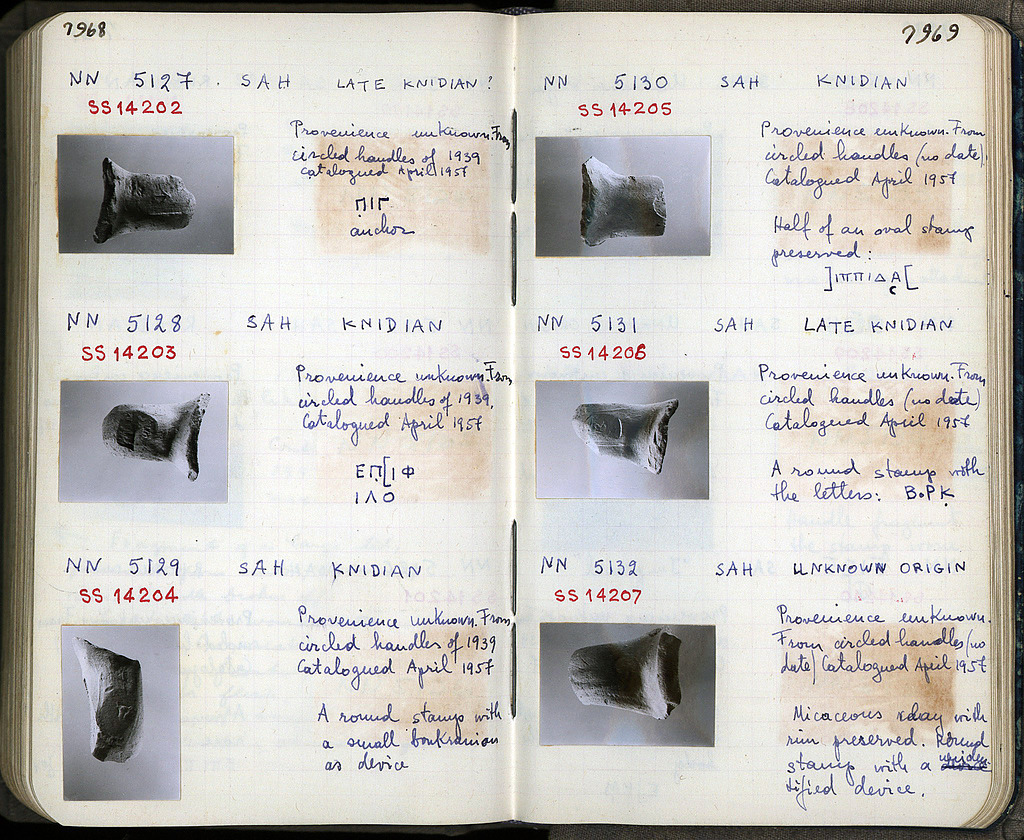 7968
NN 5127. SAH LATE KNIDIAN?
SS 14202
Provenience unknown. From
circled handles of 1939
Catalogued April 1957
ΠΙΓ
anchor
NN 5128 SAH KNIDIAN
SS 14203
Provenience unknown. From
circled handles of 1939.
Catalogued April 1957
ΕΠ[ΙΦ
ΙΛΟ
NN 5129 SAH KNIDIAN
SS 14204
Provenience unknown. From
circled handles of 1939
Catalogued April 1957
A round stamp with
a small boukranion
as device
7969
NN 5130 SAH KNIDIAN
SS 14205
Provenience unknown. From
circled handles (no date).
Catalogued April 1957
Half of an oval stamp
preserved:
]ΙΠΠΙΔΑ[
C
NN 5131 SAH LATE KNIDIAN
SS 14206
Provenience unknown. From
circled handles (no date)
Catalogued April 1957
A round stamp with
the letters: BoPK
NN 5132 SAH UNKNOWN ORIGIN
SS 14207
Provenience unknown.
From circled handles (no
date) Catalogued April 1957
Micaceous clay with
rim preserved. Round
stamp with a uniden-
tified device.